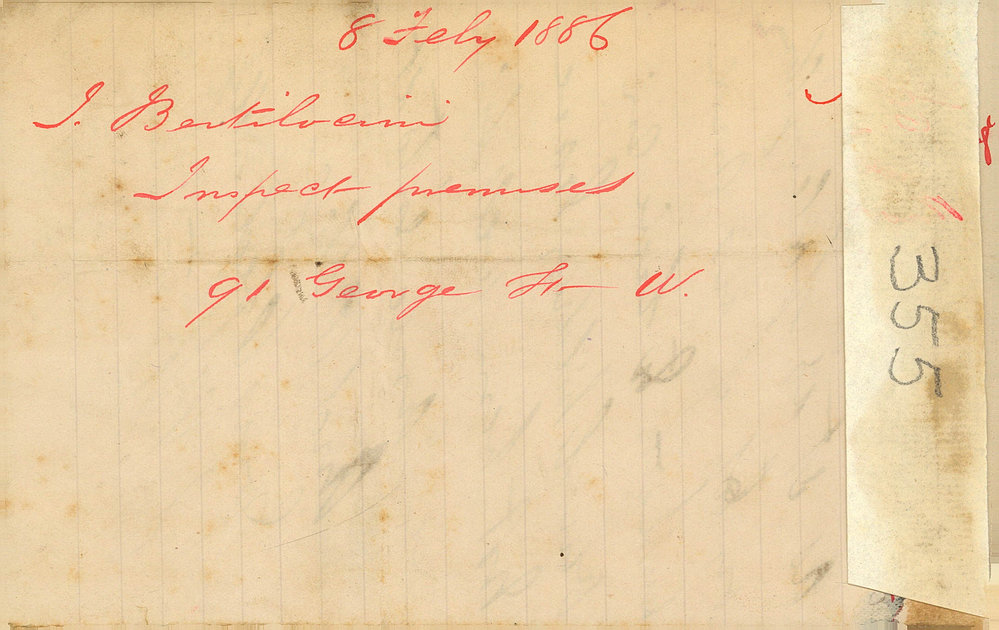 8 Feby 1886
I. Bertilocini
Inspect premises
91 George St W.
355